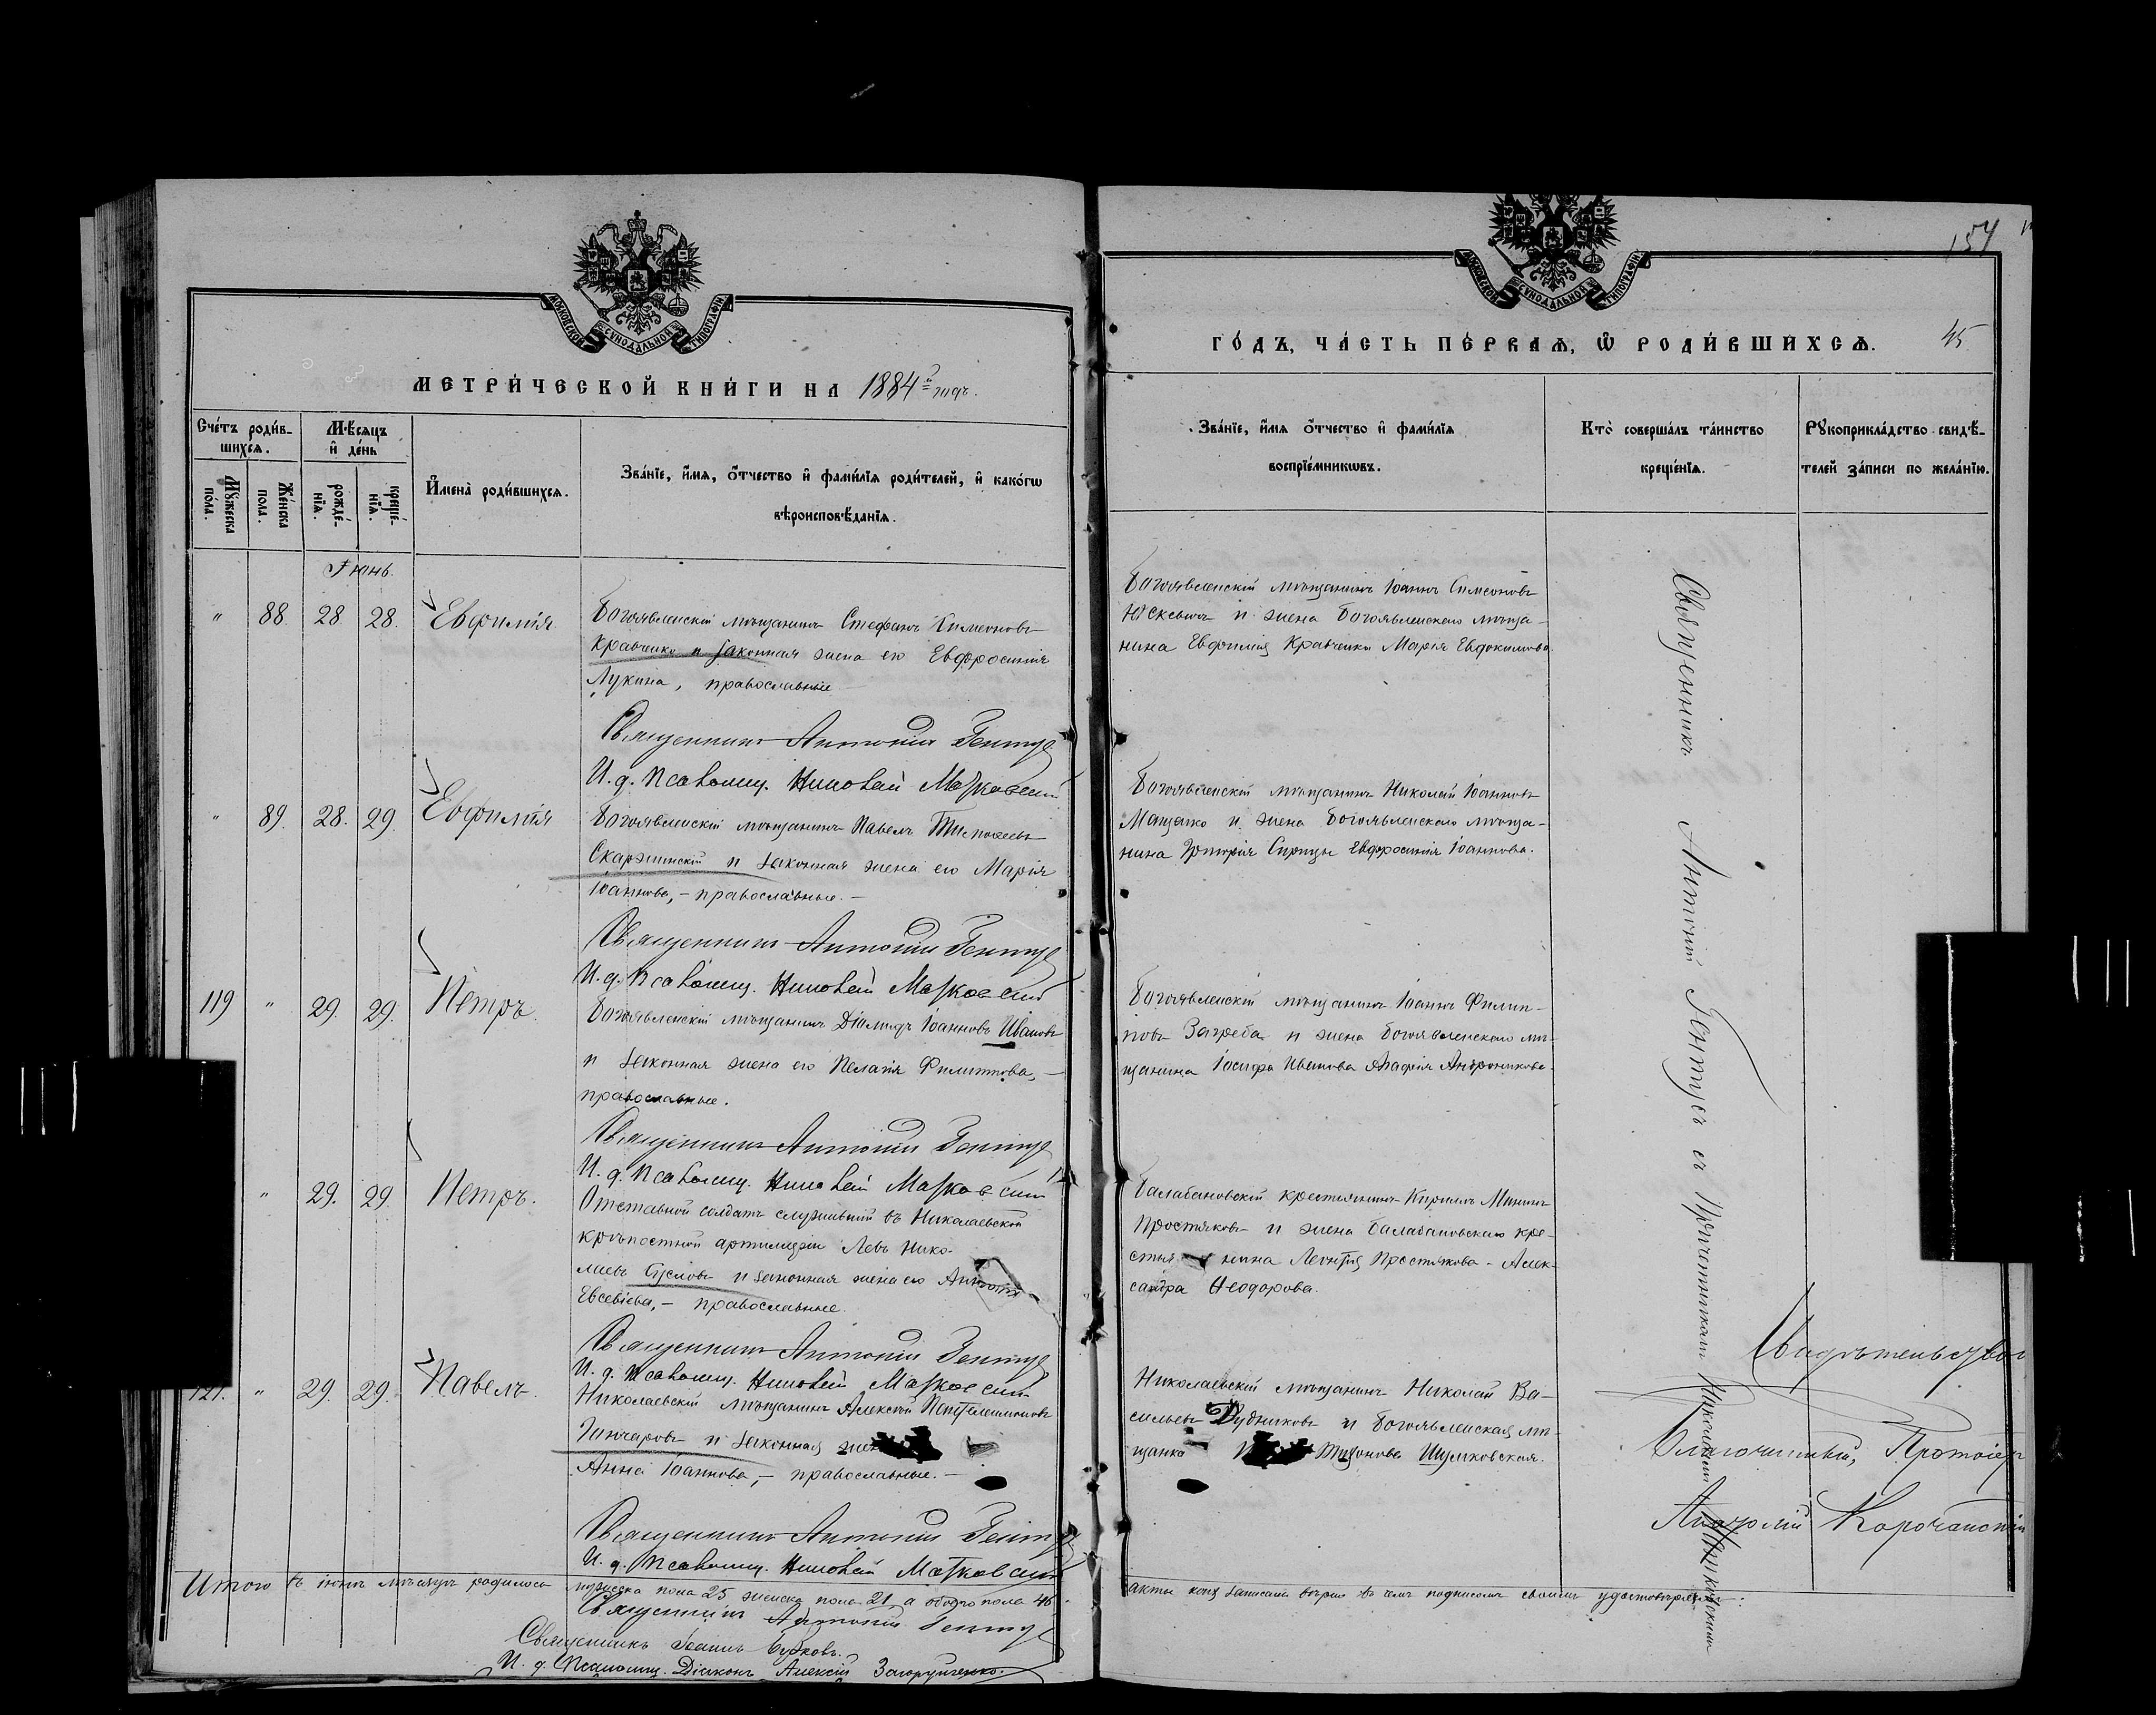 МОСКОВСКОЙ СѴНОДАЛЬНОЙ ТИПОГРАФІИ
МЕТРИ́ЧЕСКОЙ КНИ́ГИ НА 1884й годъ.
Сче́тъ роди́в-
шихся.
Мѣ́сяцъ
и҆ де́нь
Му́жеска
по́ла.
Же́нска
пола.
рожде́-
нїя.
креще́-
нїя.
И҆мена̀ роди́вшихся.
Зва́нїе, и҆́мя, ѻ҆́тчество и҆ фами́лїя роди́телей, и҆ како́гѡ
вѣроисповѣ́данїя.
Іюнь.
" 88. 28 28. Евфимія.
Богоявленскій мѣщанинъ Стефанъ Симеоновъ
Кравченко и законная жена его Евфросинія
Лукина, православные.
Священникъ Антоній Гентус
И. д. псаломщ. Николай Марковскій
" 89. 28. 29. Евфимія
Богоявленскій мѣщанинъ Павелъ
Скаржинскій и законная жена его Марія
Іоаннова, – православные. –
Священникъ Антоній Гентус
И. д. псаломщ. Николай Марковскій
119 " 29. 29. Петръ.
Богоявленскій мѣщанинъ Діомидъ Іоанновъ Ивановъ
и законная жена его Пелагія Филиппова, –
православные.
Священникъ Антоній Гентус
И. д. псаломщ. Николай Марковскій
" 29. 29 Петръ.
Отставной солдатъ служившій въ Николаевской
крѣпостной артиллеріи Левъ Нико-
лаевъ Сусловъ и законная жена его
Евсевіева, – православные.
Священникъ Антоній Гентус
И. д. псаломщ. Николай Марковскій
121. " 29. 29. Павелъ.
Николаевскій мѣщанинъ Алексѣй Пантелеимоновъ
Гончаровъ и законная жен
Анна Іоаннова, – православные. –
Священникъ Антоній Гентус
И. д. псаломщ. Николай Марковскій
Итого въ іюнѣ мѣсяцѣ родилось мужеска пола 25 женска пола 21 а обоего пола 46.
Священникъ Антоній Гентус
Священникъ Іоаннъ
И. д. Псаломщ. Діаконъ Алексій
МОСКОВСКОЙ СѴНОДАЛЬНОЙ ТИПОГРАФІИ
154
ГО́ДЪ, ЧА́СТЬ ПЕ́РВАЯ, Ѡ҆ РОДИ́ВШИХСЯ.
45
Зва́нїе, и҆́мя ѻ҆́тчество и҆ фами́лїя
воспрїе́мникѡвъ.
Кто̀ соверша́лъ та́инство
креще́нїя.
Рꙋкоприкла́дство свидѣ́-
телей за́писи по жела́нїю.
Богоявленскій мѣщанинъ Іоаннъ Симеоновъ
и жена Богоявленскаго мѣща-
нина Евфимія Кравченки Марія Евдокимова.
Богоявленскій мѣщанинъ Николай Іоанновъ
Мащенко и жена Богоявленскаго мѣща-
нина Григорія Евфросинія Іоаннова.
Богоявленскій мѣщанинъ Іоаннъ Филип-
повъ Загреба и жена Богоявленскаго мѣ-
щанина Іосифа Иванова Агафія Андроникова.
Балабановскій крестьянинъ Кириллъ Мининъ
Простяковъ и жена балабановскаго кре-
стья нина Леонтія Простякова – Алек-
сандра Ѳеодорова.
Николаевскій мѣщанинъ Николай Ва-
сильевъ Дудниковъ и Богоявленская мѣ-
щанка Тихонова Шумковская.
Священникъ Антоній Гентусъ съ Причетникомъ Николаемъ Марковскимъ
Свидѣтельствов
Благочинный, Протоіер
Корочанскій
акты коих записаны вѣрно въ чемъ подписомъ своимъ удостовѣряемъ: